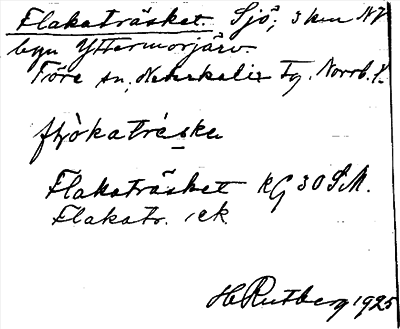 Flakaträsket. Sjö, 3 km NV
byn Yttermorjärv.
Töre sn, Nederkalix Tg. Norrb. l.
Flakaträsket KG 30 S.M.
Flakatr. ek
H Rutberg 1925